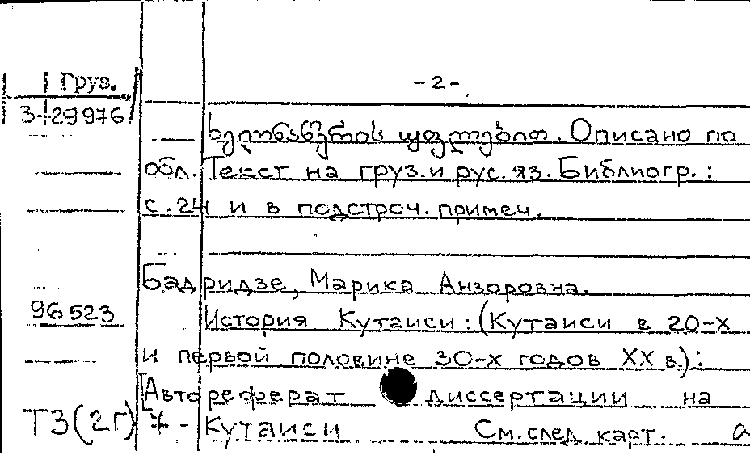 Груз. -2-
3-29976
ხელნაწერის უფლებით. Описано по
обл. Текст на груз. и рус. яз. Библиогр.:
с. 24 и в подстроч. примеч.
Бадридзе, Марика Анзоровна.
96523
История Кутаиси: (Кутаиси в 20-х
и первой половине 30-х годов XX в.):
[Автореферат диссертации на
Т3(2Г)7-Кутаиси См. след. карт.